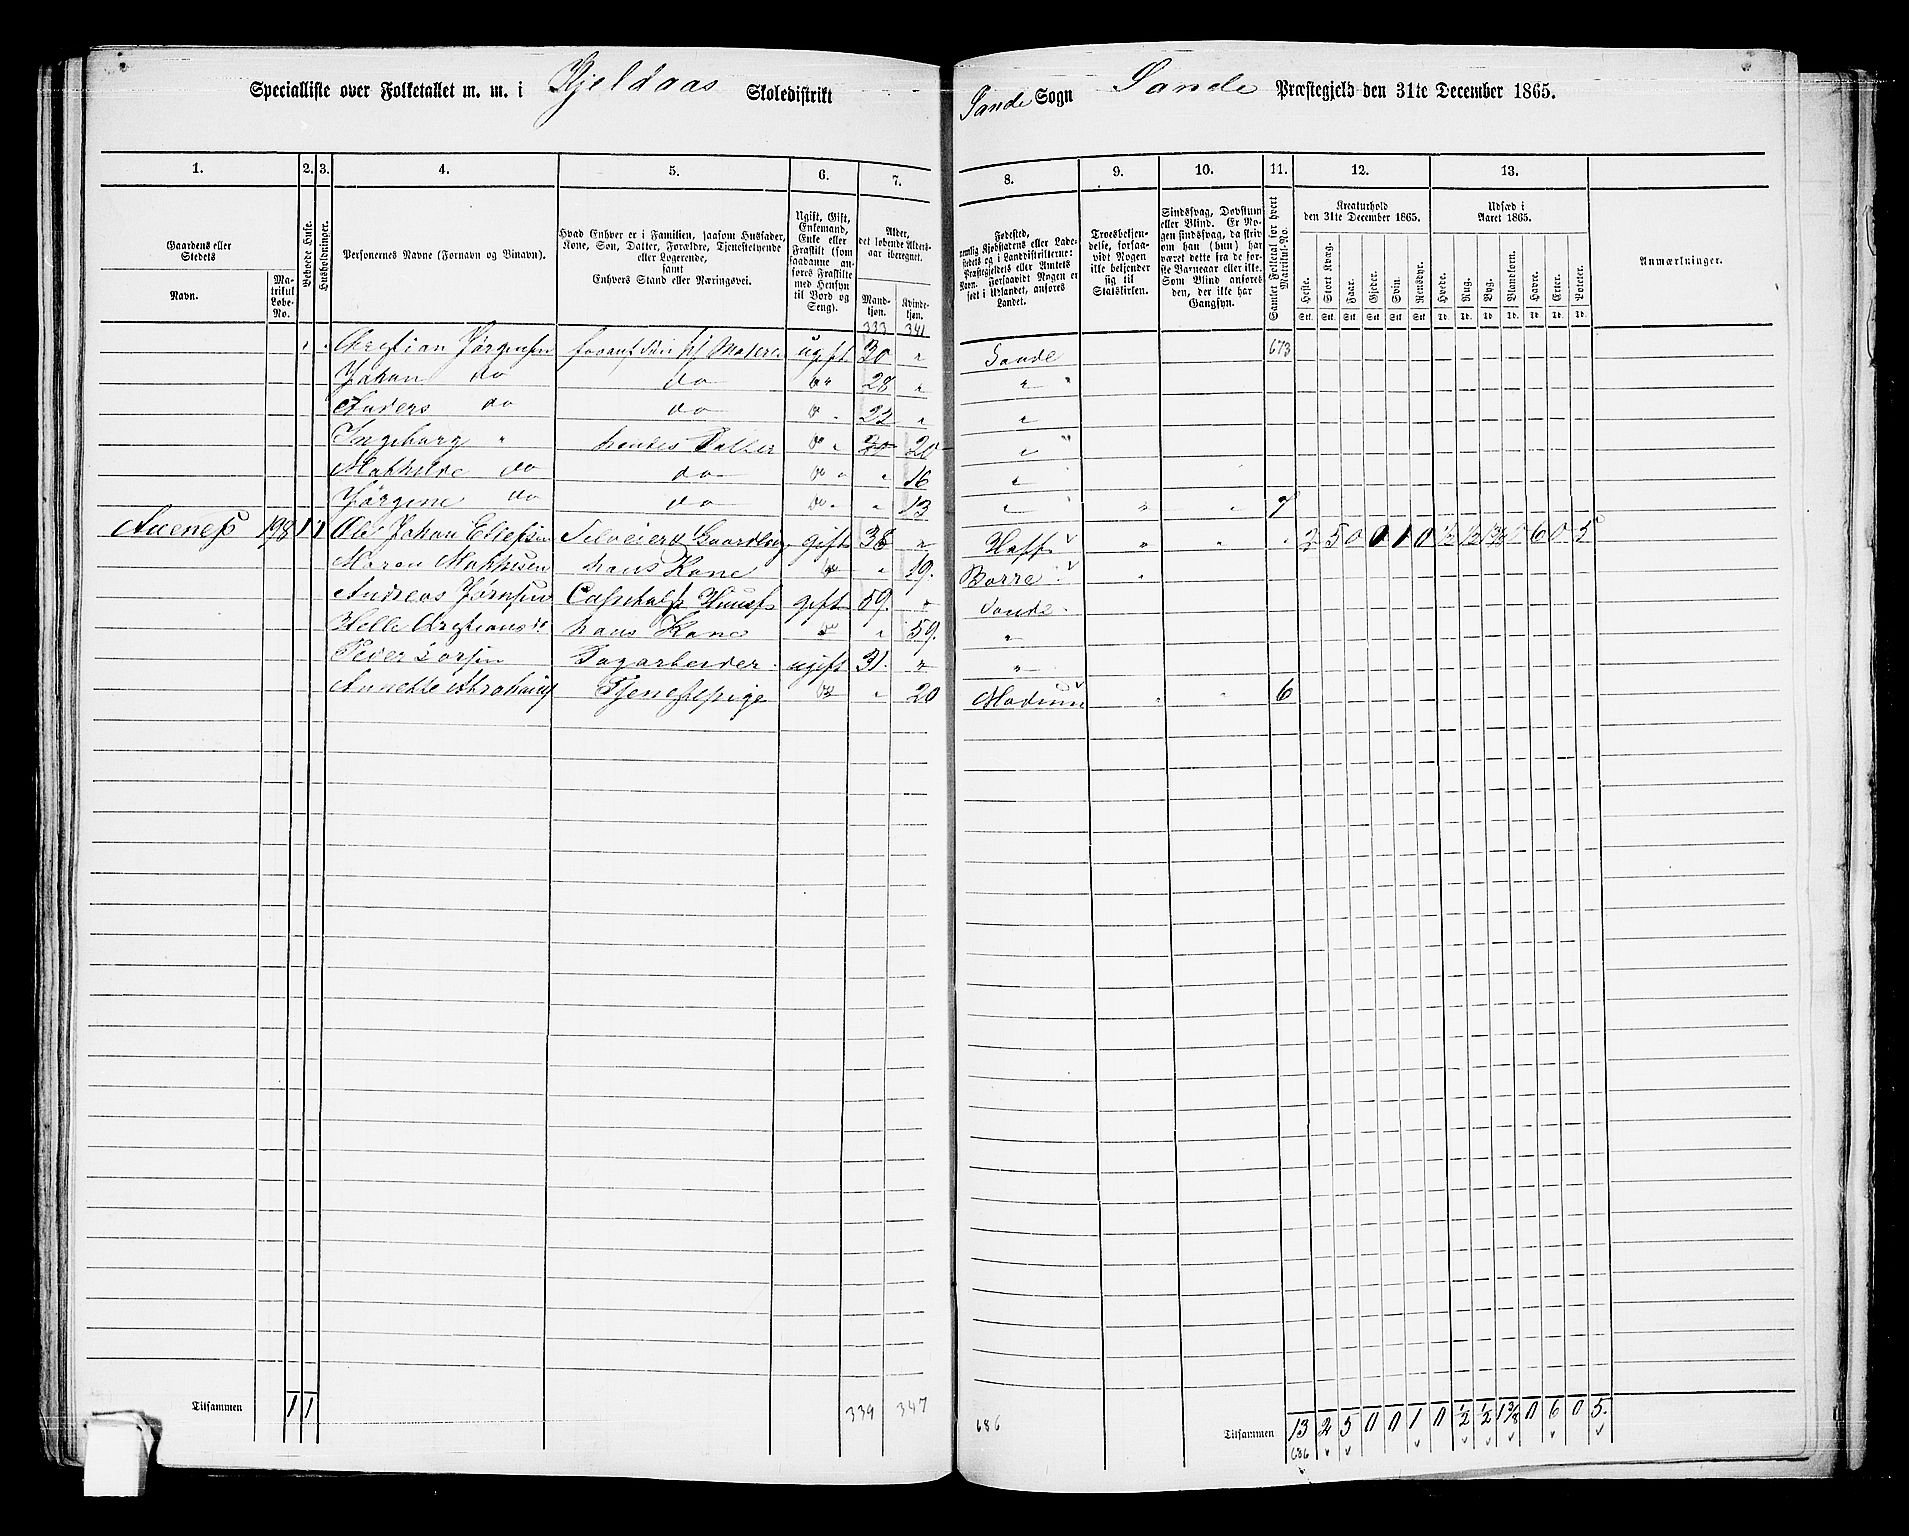 Specialliste over Folketallet m. m. i Kjeldaas Skoledistrikt
Sande Sogn Sande Præstegjeld den 31te December 1865.
1. 2. 3. 4. 5. 6. 7. 8. 9. 10. 11. 12. 13.
Gaardens eller Stedets
Navn.
Matrikul Løbe-No.
Beboede Huse.
Husholdninger.
Personernes Navne (Fornavn og Binavn).
Hvad Enhver er i Familien, saasom Husfader, Kone, Søn, Datter, Forældre, Tjenestetyende eller Logerende, samt Enhvers Stand eller Næringsvei.
Ugift, Gift, Enkemand, Enke eller Fraskilt (som saadanne anføres Fraskilte med Hensyn til Bord og Seng).
Alder, det løbende Aldersaar iberegnet.
Mandkjøn. Kvindekjøn.
Fødested, nemlig Kjøbstadens eller Ladestedets og i Landdistrikterne: Præstegjeldets eller Amtets Navn. Forsaavidt Nogen er født i Udlandet, anføres Landet.
Troesbekjendelse, forsaavidt Nogen ikke bekjender sig til Statskirken.
Sindssvag, Døvstum eller Blind. Er Nogen sindssvag, da skriv om han (hun) har været dette fra de første Barneaar eller ikke. Som Blind anføres den, der ikke har Gangsyn.
Samlet Folketal for hvert Matrikul-No.
Kreaturhold den 31te December 1865.
Heste. Stort Kvæg. Faar. Gjeder. Svin. Rensdyr.
Stk. Stk. Stk. Stk. Stk. Stk.
Udsæd i Aaret 1865.
Hvede. Rug. Byg. Blandkorn. Havre. Erter. Poteter.
Td. Td. Td. Td. Td. Td. Td.
Anmærkninger.
333 341
Christian Jørgensen ugift 30 " Sande 673
Johan do do do 28 " " "
Anders do do do " 22 " "
Ingeborg " hendes Datter do " 20 20 " "
Mathilde do do do " " 16 "
Jørgine do do do " " 13 " " " 7
198 1 1 Ole Johan Ellefsen Selveier Gaardbrug gift 38 " Hoff " " " 2 5 0 0 1 0 1/2 1/2 1 3/8 6 0 5
Maren Mathisen hans Kone do " 19. Borre "
Andreas Jørnsen gift 59. " Sande
Helle Christiansd. hans Kone do " 59. "
Peder Larsen Dagarbeider ugift 31. " "
Annette Abrahams Tjenestepige do " 20 Modum " " 6
Tilsammen 1 1 339 347
686 Tilsammen 13 2 5 0 0 1 0 1/2 1/2 1 3/8 0 6 0 5.
686